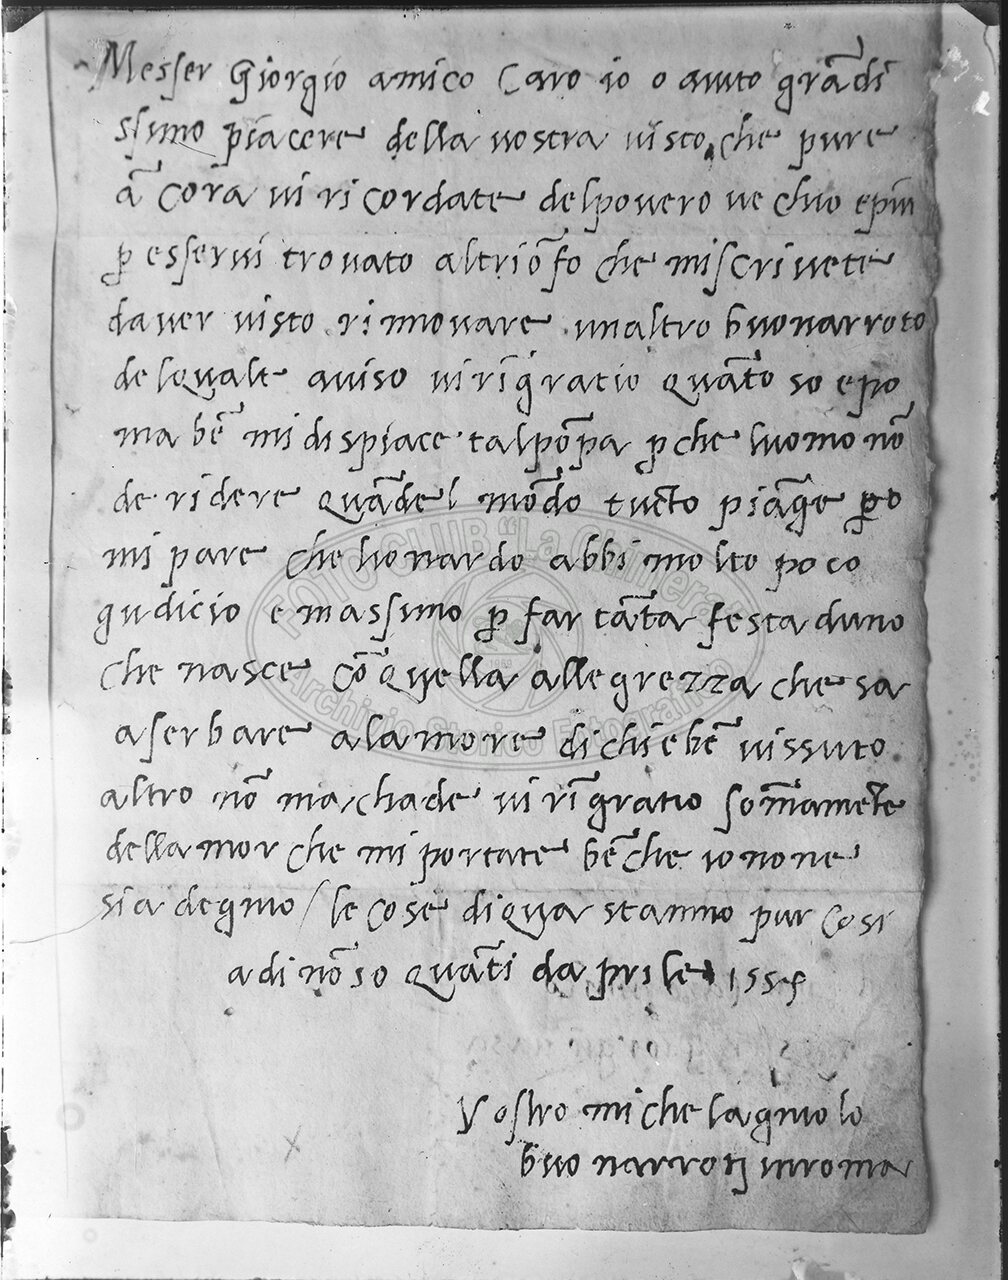 Messer Giorgio amico caro io o auuto grādi
ssimo piacere della uostra uisto che pure
ācora ui ricordate del pouero uechio e piu
p esserui trouato al triōfo che mi scriuete
dauer uisto rinnouare un altro buonarroto
del quale auiso ui rīgratio quāto so e po
ma bē mi dispiace tal pōpa pche luomo nō
de ridere quāde l mōdo tucto piāge po
mi pare che lionardo abbi molto poco
gudicio e massimo p far tāta festa duno
che nasce cō quella allegrezza che sa
a serbare a la morte di chi e bē uissuto
altro nō machade ui rīgratio sommamēte
dellamor che mi portate bēche io none
sia degnio / le cose di qua stanno pur cosi
a di nō so quāti daprile 1554
Vostro michelagniolo
buonarroti in roma
FOTO CLUB "La Chimera"
Archivio Storico Fotografico